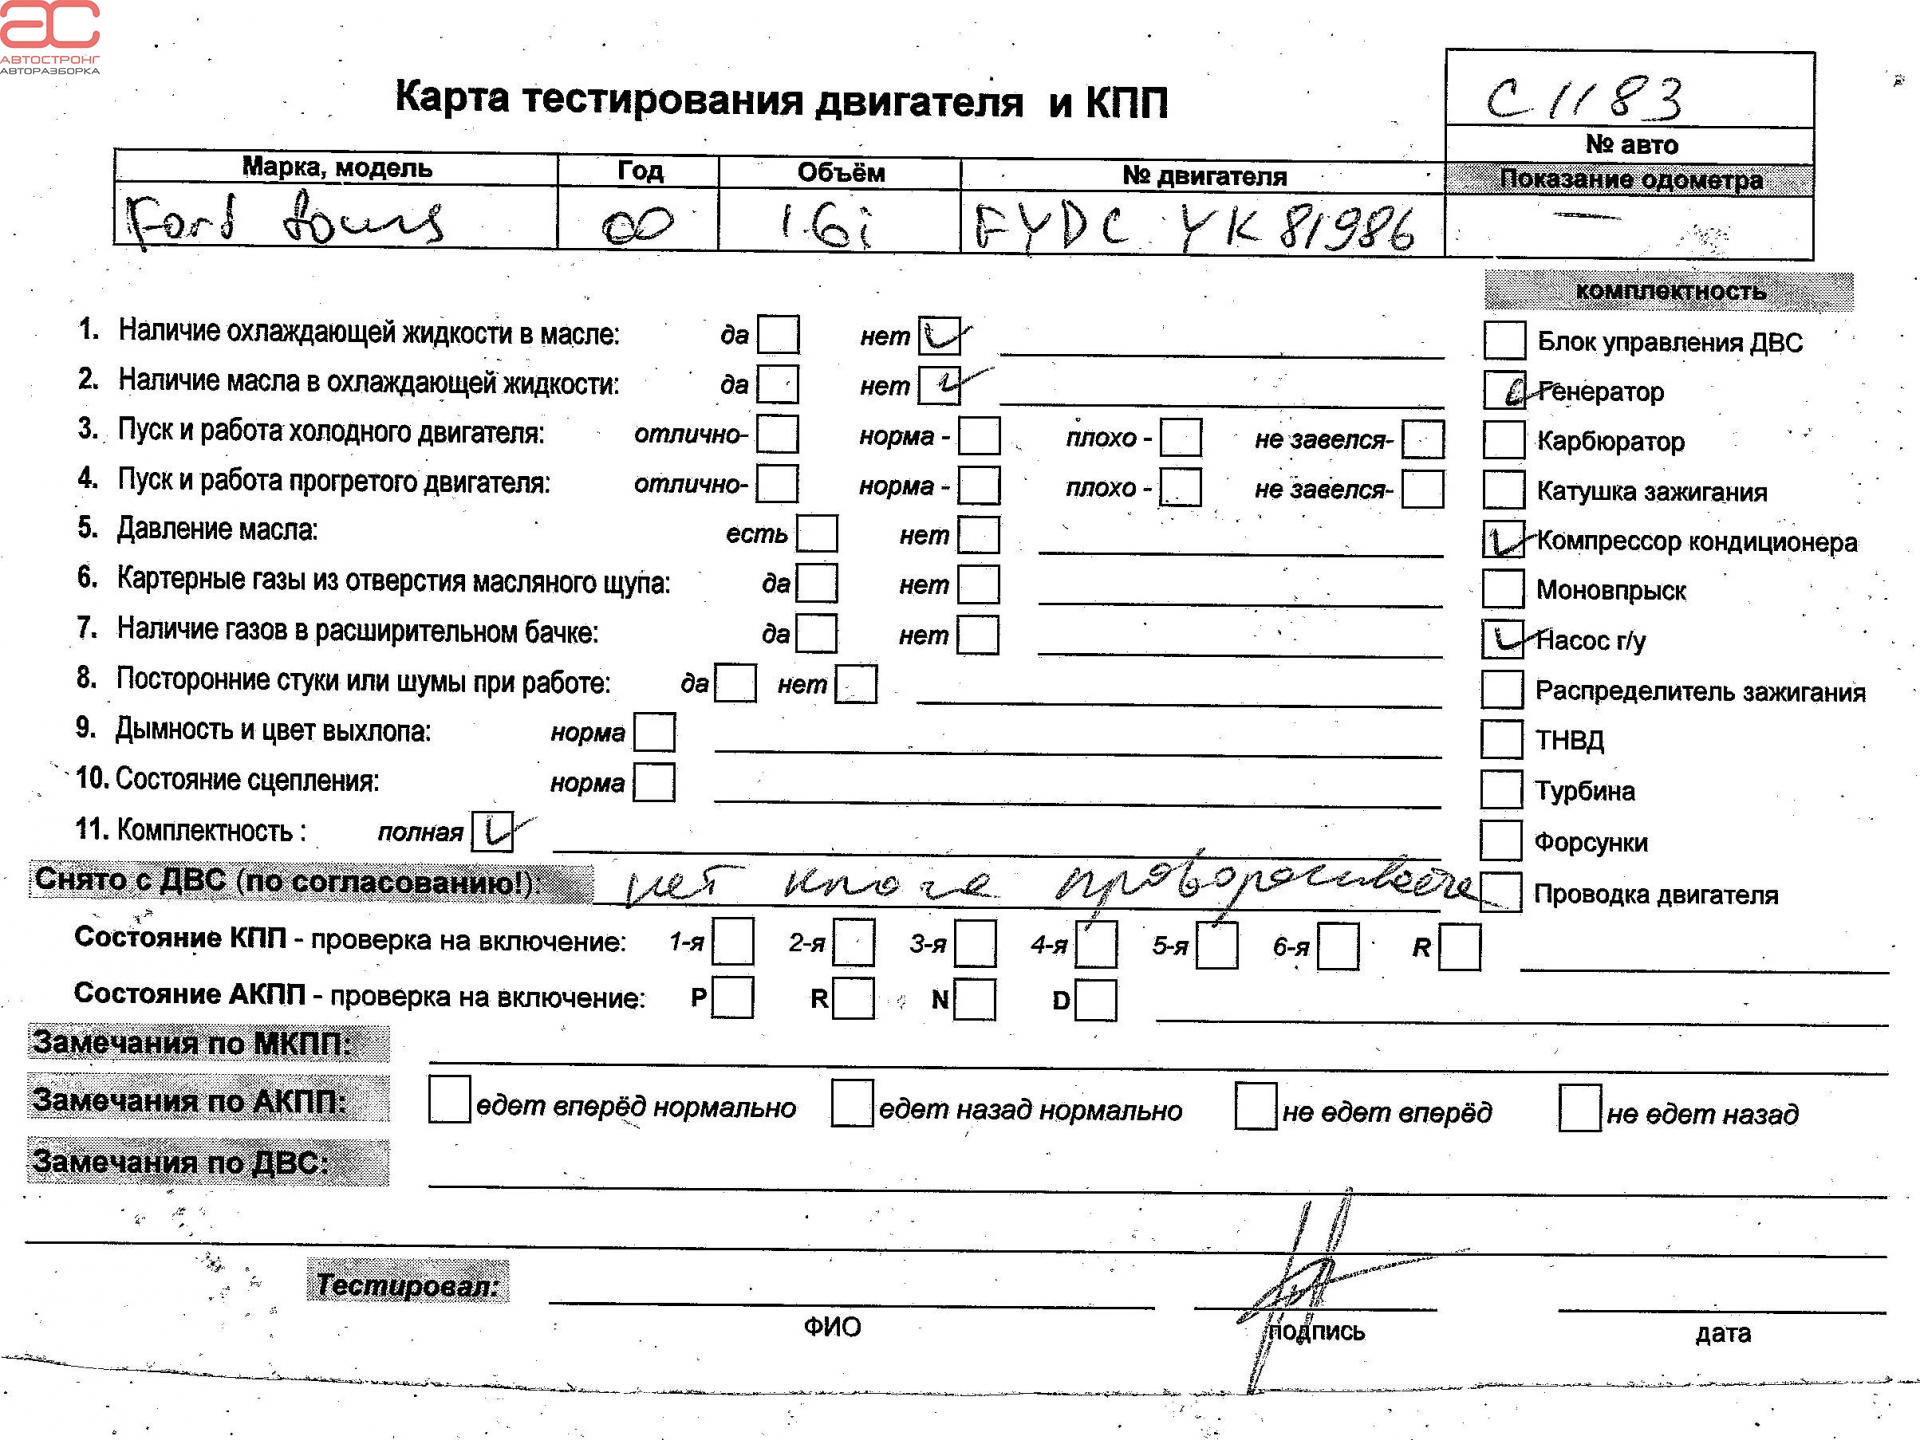 АС
АВТОСТРОНГ
АВТОРАЗБОРКА
Карта тестирования двигателя и КПП
С1183
№ авто
Марка, модель Год Объём № двигателя Показание одометра
Ford 00 1.6i FYDC YK81986 —
комплектность
1. Наличие охлаждающей жидкости в масле: да нет
Блок управления ДВС
2. Наличие масла в охлаждающей жидкости: да нет
Генератор
3. Пуск и работа холодного двигателя: отлично- норма - плохо - не завелся-
Карбюратор
4. Пуск и работа прогретого двигателя: отлично- норма - плохо - не завелся-
Катушка зажигания
5. Давление масла: есть нет
Компрессор кондиционера
6. Картерные газы из отверстия масляного щупа: да нет
Моновпрыск
7. Наличие газов в расширительном бачке: да нет
Насос г/у
8. Посторонние стуки или шумы при работе: да нет
Распределитель зажигания
9. Дымность и цвет выхлопа: норма
ТНВД
10. Состояние сцепления: норма
Турбина
11. Комплектность : полная
Форсунки
Снято с ДВС (по согласованию!): нет
Проводка двигателя
Состояние КПП - проверка на включение: 1-я 2-я 3-я 4-я 5-я 6-я R
Состояние АКПП - проверка на включение: P R N D
Замечания по МКПП:
Замечания по АКПП: едет вперёд нормально едет назад нормально не едет вперёд не едет назад
Замечания по ДВС:
Тестировал:
ФИО подпись дата